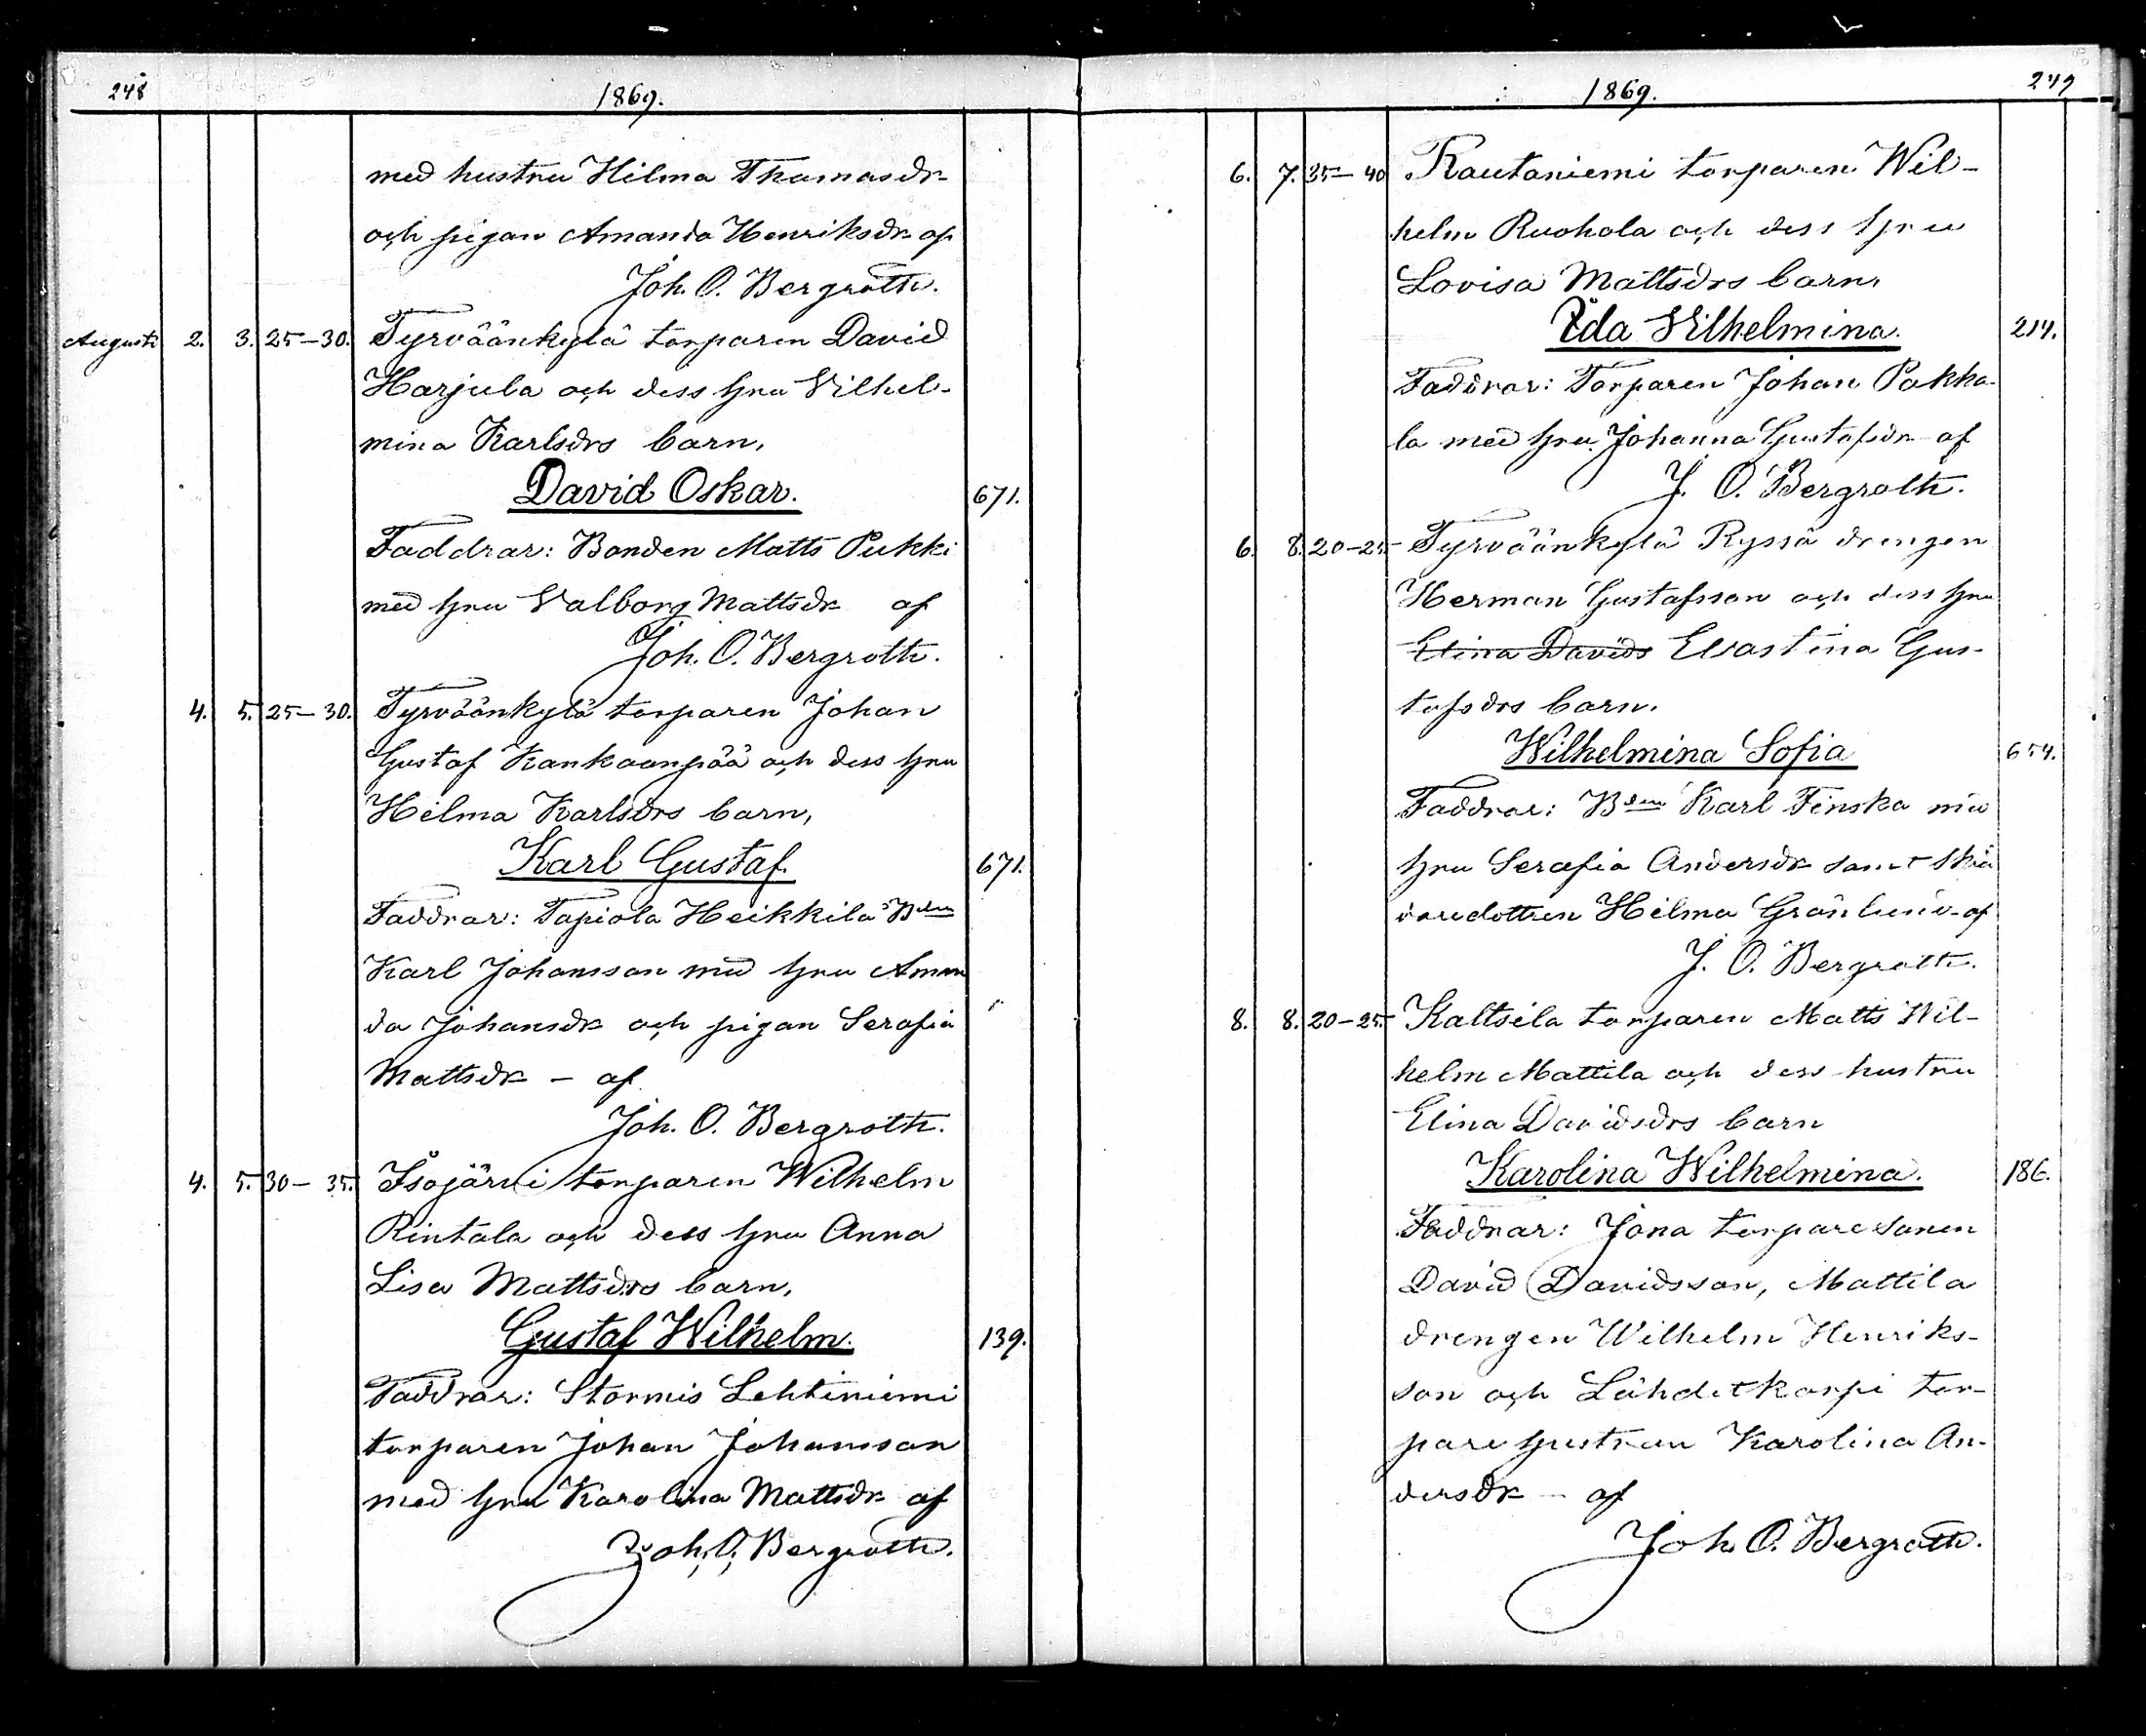 248
1869.
med hustru Hilma Thomasdr
och pigan Amanda Henriksdr af
Joh. O. Bergroth.
Augusti 2. 3. 25–30. Tyrväänkylä torparen David
Harjula och dess hru Vilhel-
mina Karlsdrs barn,
David Oskar. 671.
Faddrar: Bonden Matts Pukki
med hru Valborg Mattsdr af
Joh. O. Bergroth.
4. 5. 25–30. Tyrväänkylä torparen Johan
Gustaf Kankaanpää och dess hru
Hilma Karlsdrs barn,
Karl Gustaf. 671.
Faddrar: Tapiola Heikkilä Bden
Karl Johansson med hru Aman
da Johansdr och pigan Serafia
Mattsdr – af
Joh. O. Bergroth.
4. 5. 30–35. Isojärvi torparen Wilhelm
Rintala och dess hru Anna
Lisa Mattsdrs barn,
Gustaf Wilhelm. 139.
Faddrar: Stormis Lehtiniemi
torparen Johan Johansson
med hru Karolina Mattsdr af
Joh. O. Bergroth.
249
1869.
6. 7. 35–40 Rautaniemi torparen Wil-
helm Ruohola och dess hru
Lovisa Mattsdrs barn,
Ida Vilhelmina. 214.
Faddrar: Torparen Johan Pakka-
la med hru Johanna Gustafsdr af
J. O. Bergroth.
6. 8. 20–25. Tyrväänkylä Ryssä drengen
Herman Gustafsson och dess hru
Elina Davids Evastina Gus-
tafsdrs barn.
Wilhelmina Sofia 654.
Faddrar: Bden Karl Finska med
hru Serafia Andersdr samt
Hilma Grönlund af
J. O. Bergroth.
8. 8. 20–25. Kaltsila torparen Matts Wil-
helm Mattila och dess hustru
Elina Davidsdrs barn
Karolina Wilhelmina. 186.
Faddrar: torpare sonen
David Davidsson, Mattila
drengen Wilhelm Henriks-
son och Lähdetkorpi tor-
pare hustrun Karolina An-
dersdr – af
Joh. O. Bergroth.